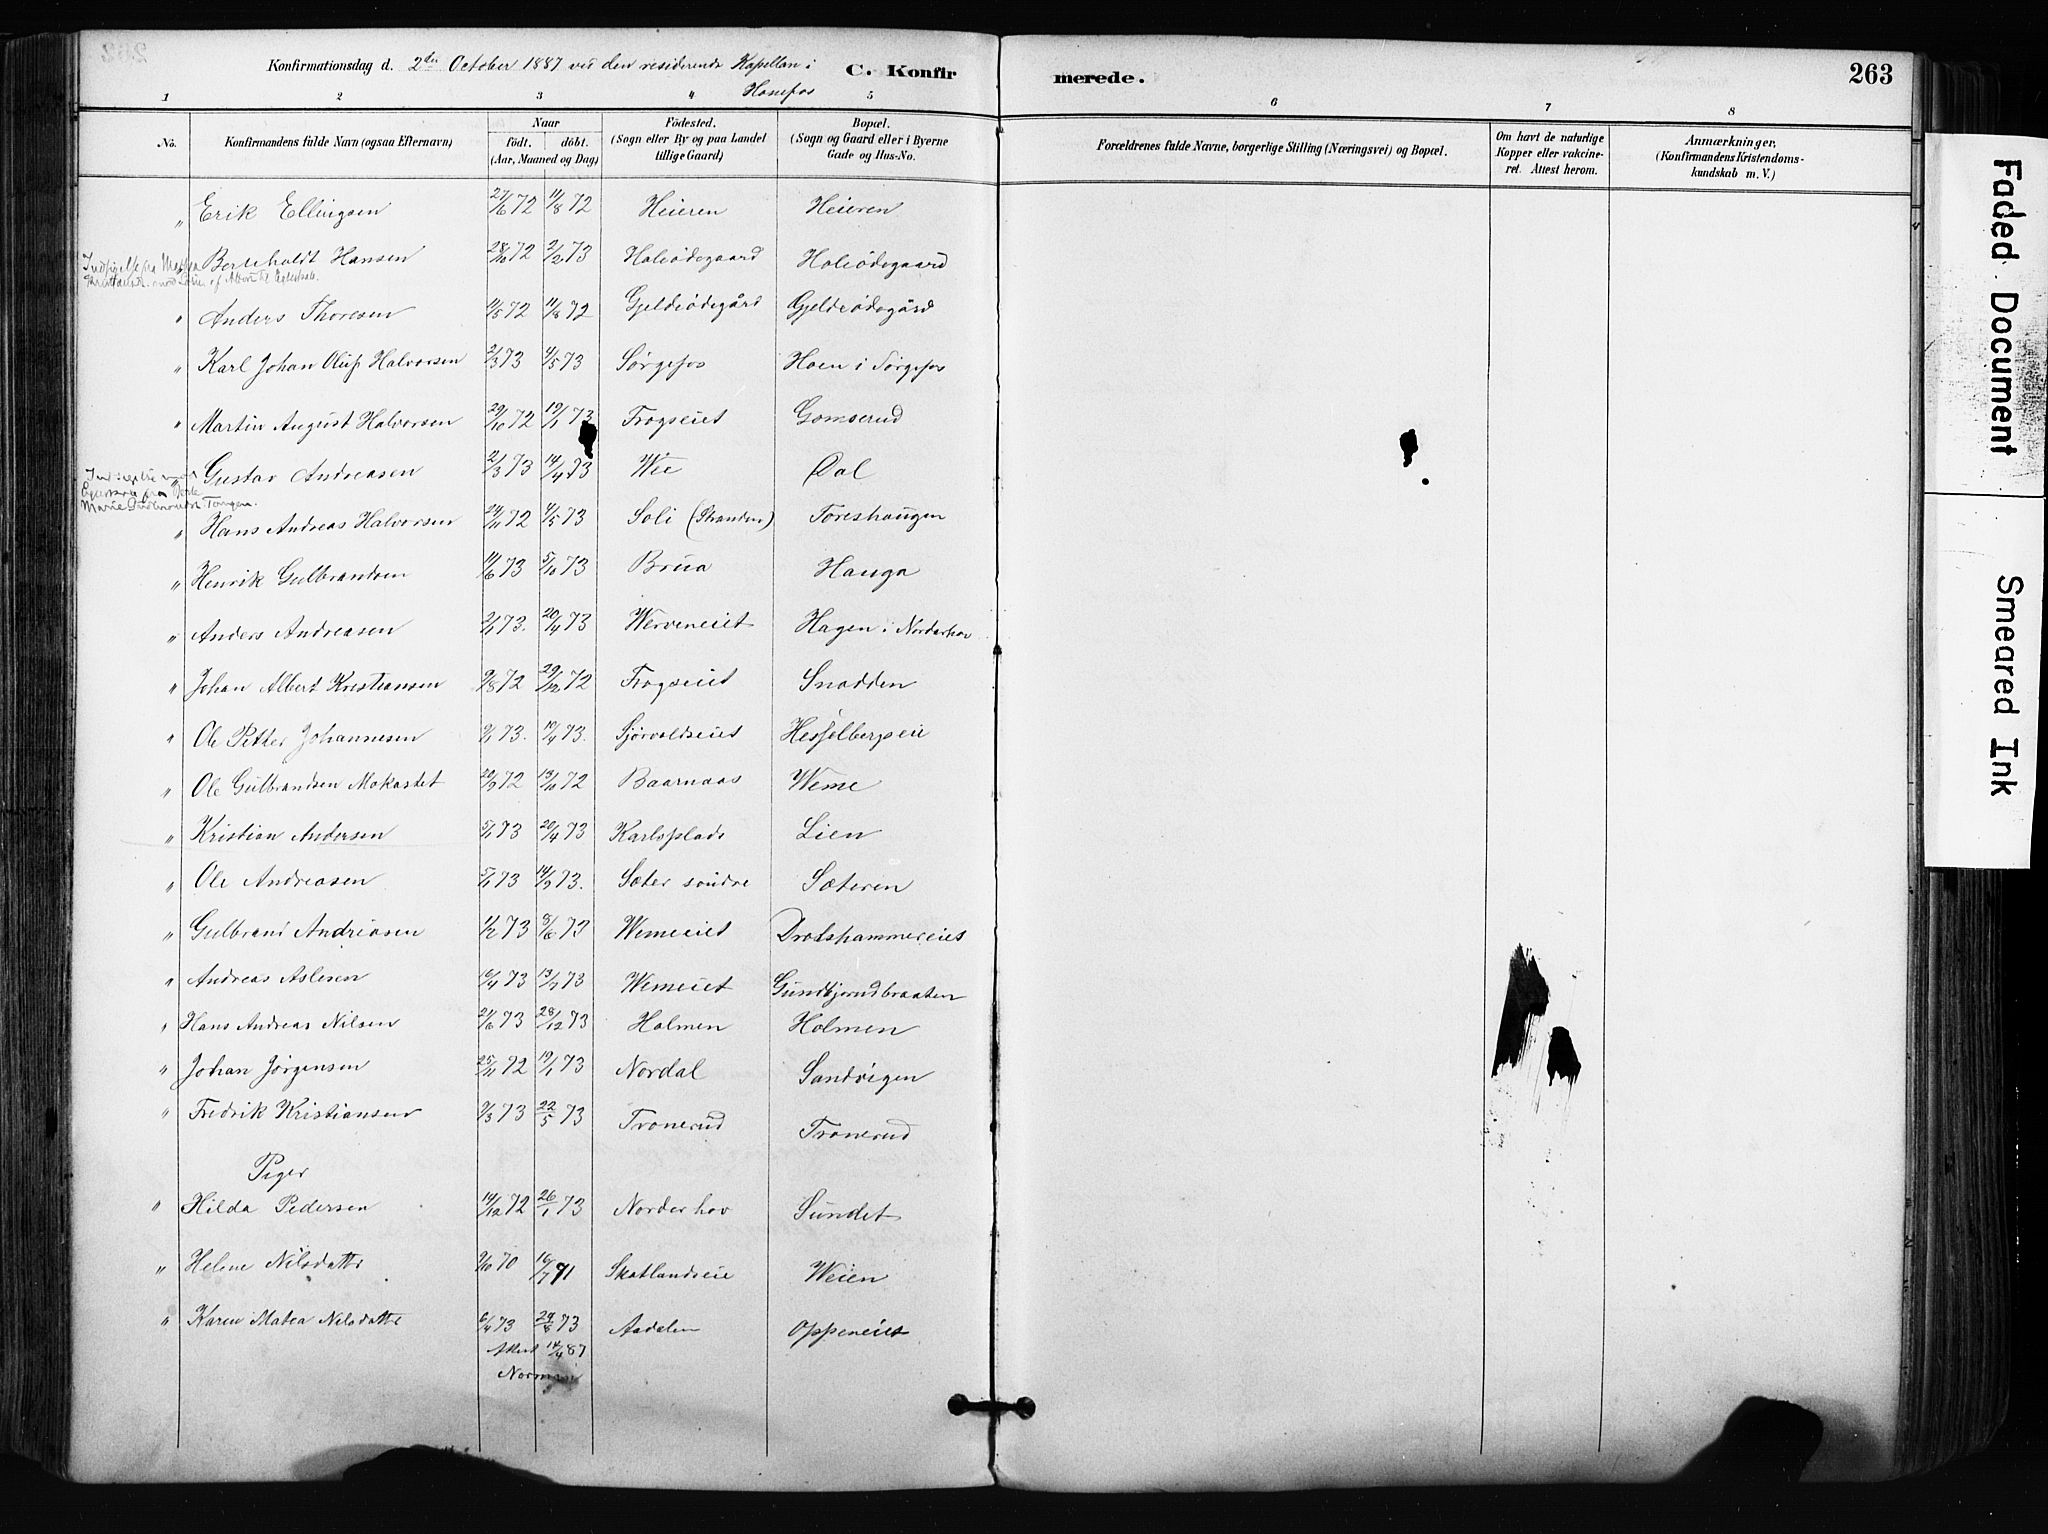 Konfirmationsdag d. 2den October 1887 ved den residerende Kapellan i Hønefos
C. Konfirmerede.
263
1 2 3 4 5 6 7 8
No.
Konfirmandens fulde Navn (ogsaa Efternavn)
Naar
født. døbt.
(Aar, Maaned og Dag)
Fødested.
(Sogn eller By og paa Landet
tillige Gaard)
Bopæl.
(Sogn og Gaard eller i Byerne
Gade og Hus-No.
Forældrenes fulde Navne, borgerlige Stilling (Næringsvei) og Bopæl.
Om havt de naturlige
Kopper eller vakcine-
ret. Attest herom.
Anmærkninger,
(Konfirmandens Kristendoms-
kundskab m. V.)
Faded Document
Smeared Ink
" Erik Ellingsen 27/6 72 11/8 72 Heieren Heieren
Bertholdt Hansen 28/10 72 2/2 73 Holeødegaard Holeødegaard
" Anders Thoresen 14/5 72 11/8 72 Gjeldeødegård Gjeldeødegård
" Karl Johan Oluf Halvorsen 2/3 73 4/5 73 Sørgefos Hoen i Sørgefos
" Martin August Halvorsen 29/10 72 19/1 73 Frogseiet Gomserud
" Gustav Andreasen 2/3 73 14/4 73 Wie Dal
" Hans Andreas Halvorsen 24/11 72 4/5 73 Soli (Stranden) Toreshaugen
" Henrik Gulbrandsen 14/6 73 5/10 73 Brua Hauga
" Anders Andreasen 2/1 73. 20/4 73 Werveneiet Hagen i Norderhov
" Johan Albert Kristiansen 9/8 72 29/12 72 Frogseiet Snadden
" Ole Petter Johannesen 9/1 73. 19/4 73. Sjørvoldseiet Hesselbergseie
" Ole Gulbrandsen Mokastet 20/9 72 13/10 72 Baarnaas Weme
" Kristian Andersen 5/1 73 20/4 73 Karlsplads Lien
" Ole Andreasen 5/1 73 14/9 73. Sæter søndre Sæteren
" Gulbrand Andreasen 1/2 73 8/6 73 Wemeeiet Drolshammereiet
" Andreas Aslesen 16/4 73 13/7 73 Wemeiet Gundbjørudbraaten
" Hans Andreas Nilsen 21/6 73 28/12 73 Holmen Holmen
" Johan Jørgensen 25/11 72 19/1 73 Nordal Sandvigen
" Fredrik Kristiansen 9/3 73 22/5 73 Tronerud Tronerud
Piger
" Hilda Pedersen 14/12 72 26/1 73 Norderhov Sundet
" Helene Nilsdatter 9/10 70 16/7 71 Skotlandseie Weien
" Karen Matea Nilsdatter 6/4 73 24/8 73 Aadalen Oppeneiet
Attest 14/4 87